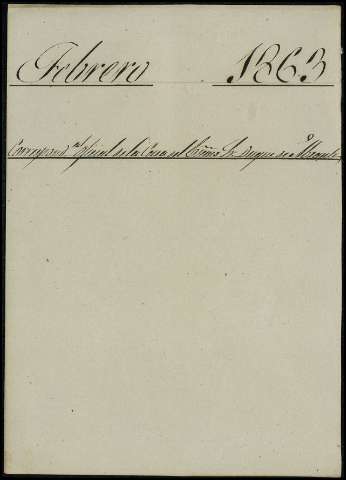 Febrero 1863
Correspond.ª oficial de la Casa del Exmo Sr Duque de